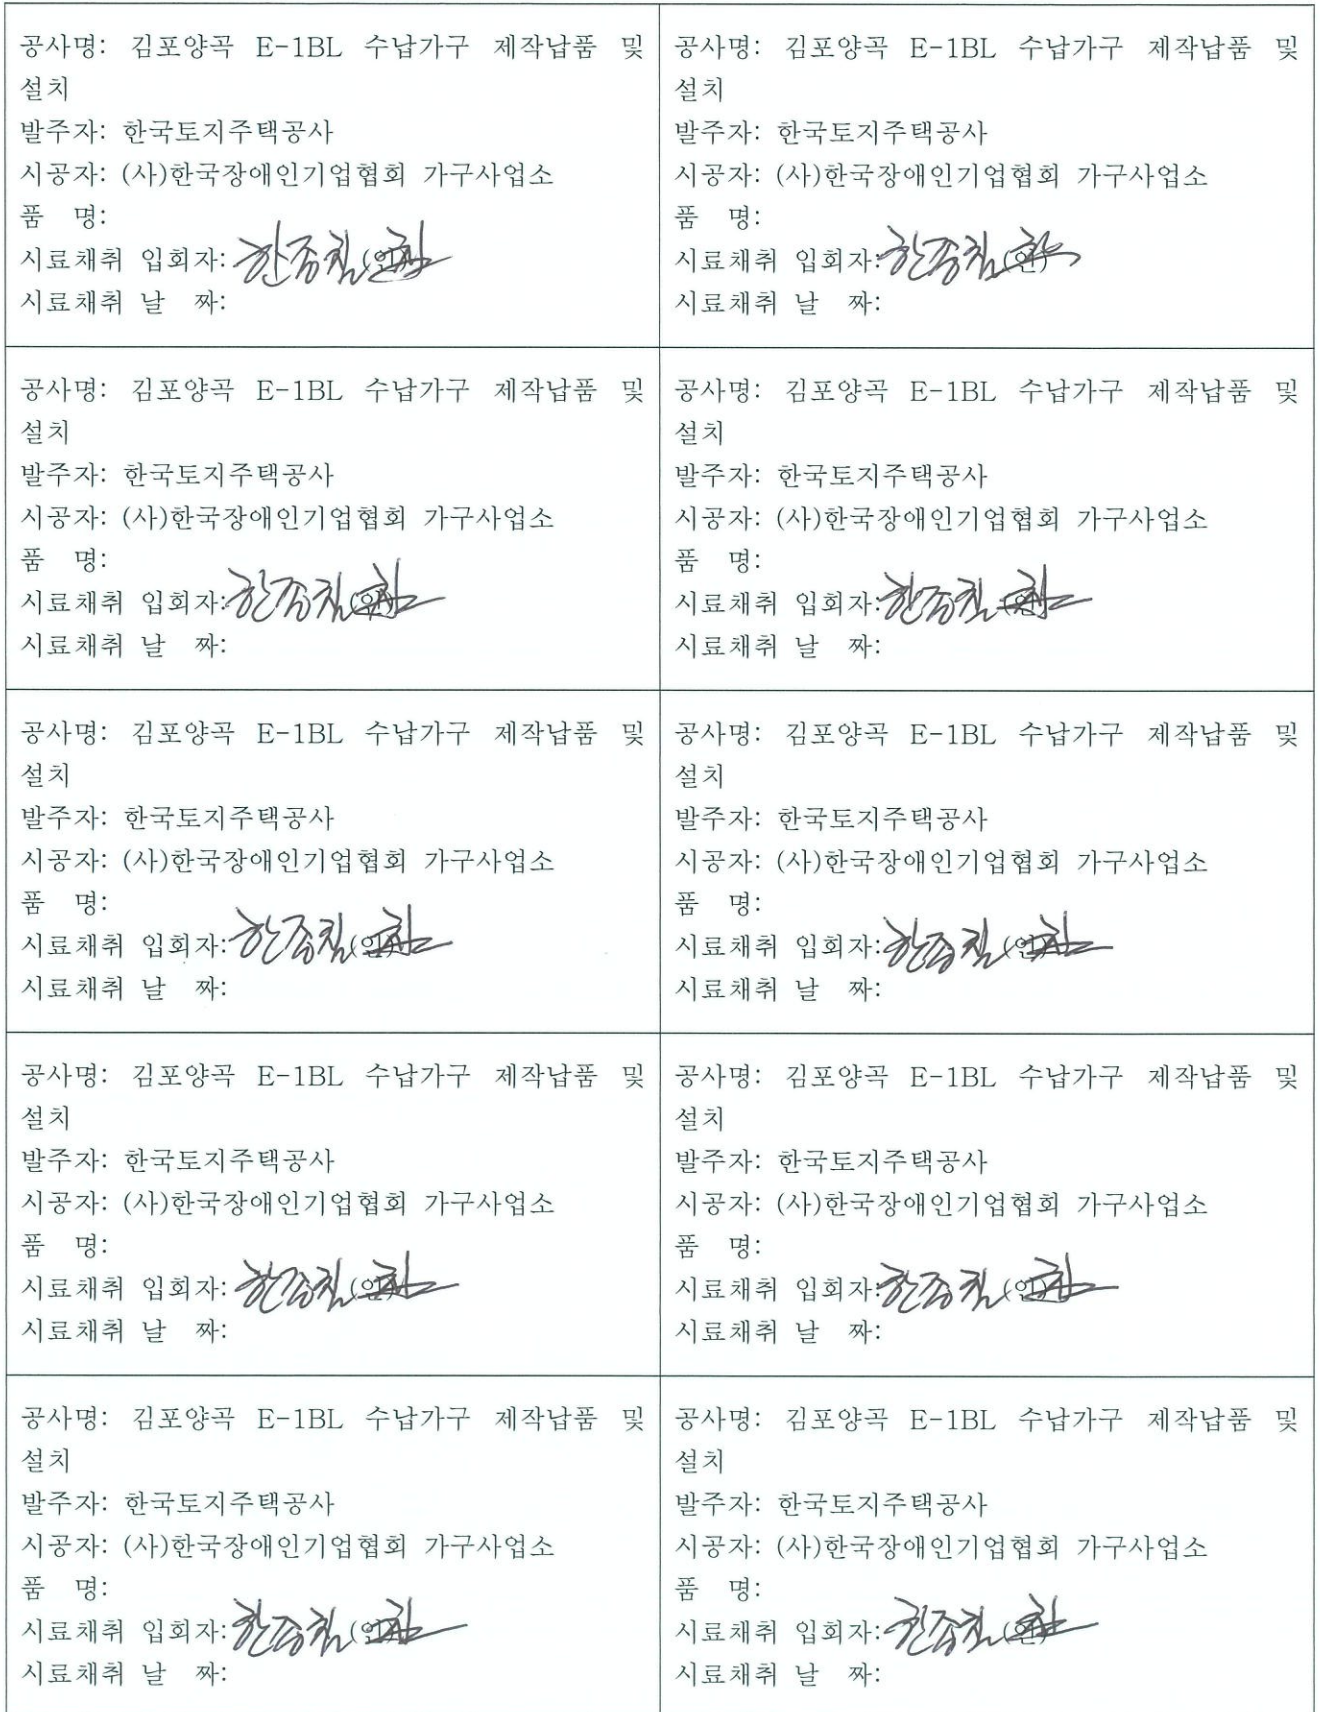 공사명: 김포양곡 E-1BL 수납가구 제작납품 및
설치
발주자: 한국토지주택공사
시공자: (사)한국장애인기업협회 가구사업소
품 명:
시료채취 입회자: (인)
시료채취 날 짜:
공사명: 김포양곡 E-1BL 수납가구 제작납품 및
설치
발주자: 한국토지주택공사
시공자: (사)한국장애인기업협회 가구사업소
품 명:
시료채취 입회자: (인)
시료채취 날 짜:
공사명: 김포양곡 E-1BL 수납가구 제작납품 및
설치
발주자: 한국토지주택공사
시공자: (사)한국장애인기업협회 가구사업소
품 명:
시료채취 입회자: (인)
시료채취 날 짜:
공사명: 김포양곡 E-1BL 수납가구 제작납품 및
설치
발주자: 한국토지주택공사
시공자: (사)한국장애인기업협회 가구사업소
품 명:
시료채취 입회자: (인)
시료채취 날 짜:
공사명: 김포양곡 E-1BL 수납가구 제작납품 및
설치
발주자: 한국토지주택공사
시공자: (사)한국장애인기업협회 가구사업소
품 명:
시료채취 입회자: (인)
시료채취 날 짜:
공사명: 김포양곡 E-1BL 수납가구 제작납품 및
설치
발주자: 한국토지주택공사
시공자: (사)한국장애인기업협회 가구사업소
품 명:
시료채취 입회자: (인)
시료채취 날 짜:
공사명: 김포양곡 E-1BL 수납가구 제작납품 및
설치
발주자: 한국토지주택공사
시공자: (사)한국장애인기업협회 가구사업소
품 명:
시료채취 입회자: (인)
시료채취 날 짜:
공사명: 김포양곡 E-1BL 수납가구 제작납품 및
설치
발주자: 한국토지주택공사
시공자: (사)한국장애인기업협회 가구사업소
품 명:
시료채취 입회자: (인)
시료채취 날 짜:
공사명: 김포양곡 E-1BL 수납가구 제작납품 및
설치
발주자: 한국토지주택공사
시공자: (사)한국장애인기업협회 가구사업소
품 명:
시료채취 입회자: (인)
시료채취 날 짜:
공사명: 김포양곡 E-1BL 수납가구 제작납품 및
설치
발주자: 한국토지주택공사
시공자: (사)한국장애인기업협회 가구사업소
품 명:
시료채취 입회자: (인)
시료채취 날 짜: